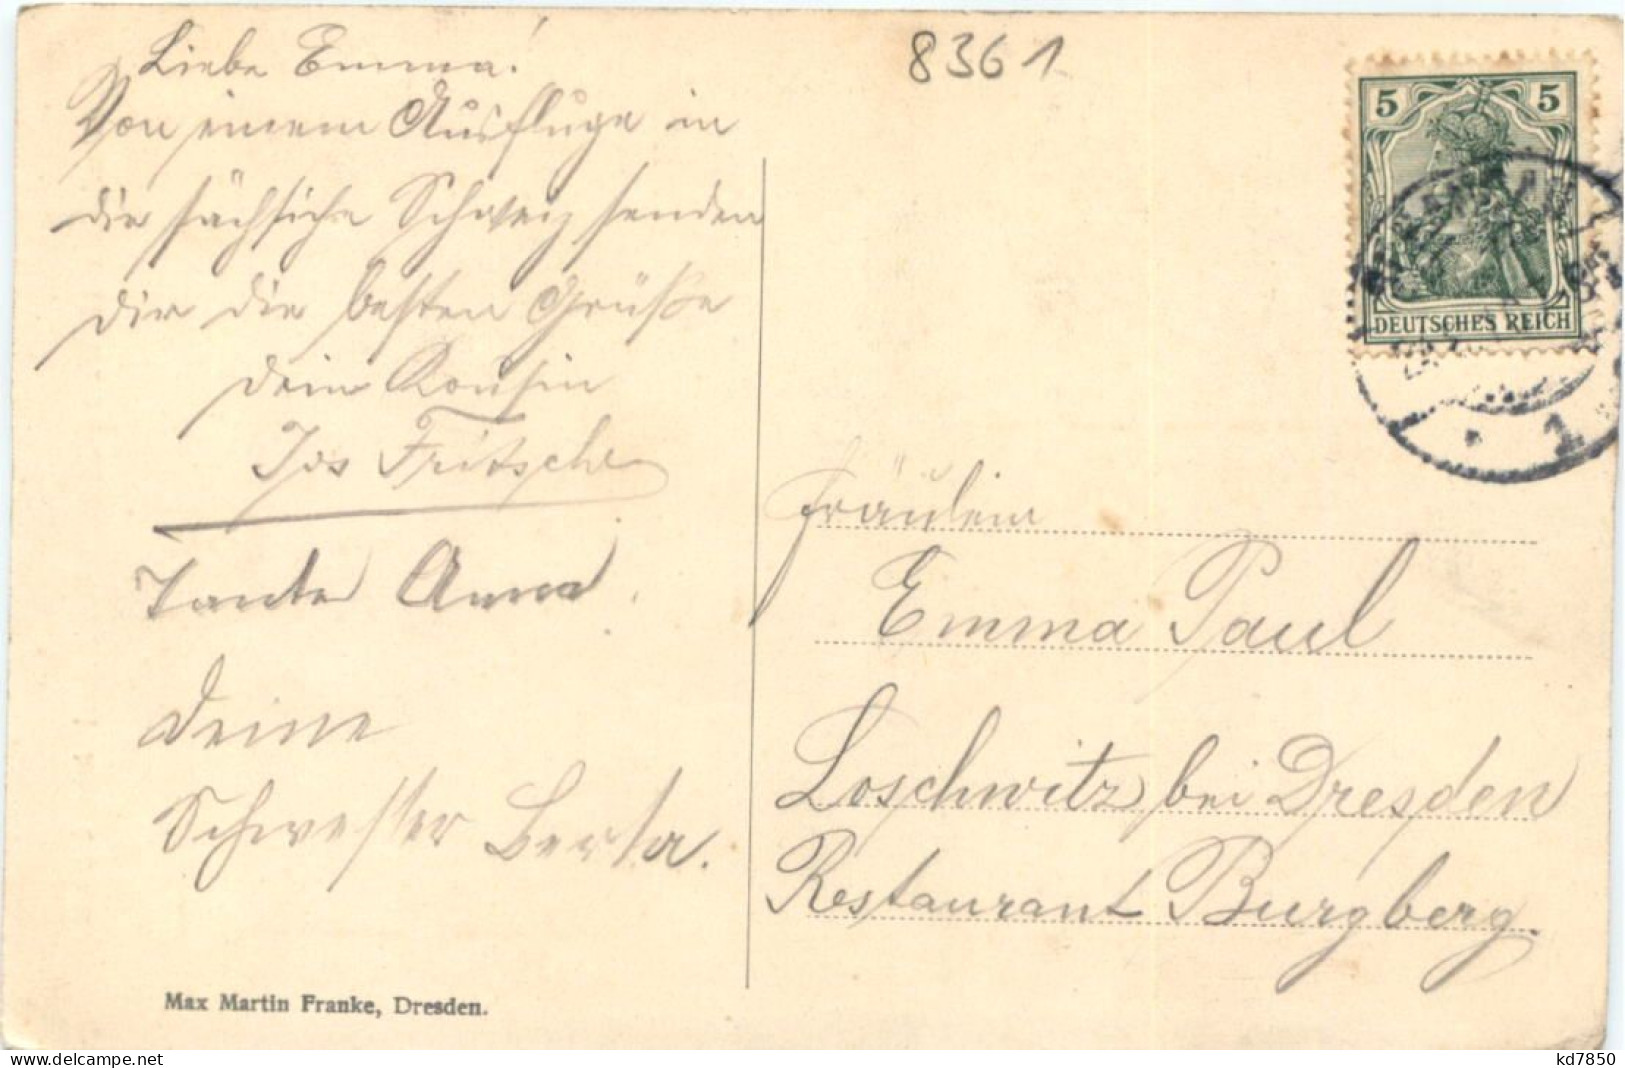 8361
Liebe Emma!
Von einem Ausfluge in
die sächsiche Schweiz senden
dir die besten Grüße
dein Kousin
Jos Fritsche
Tante Anna.
Deine
Schwester Berta.
Max Martin Franke, Dresden.
5 5
DEUTSCHES REICH
1
Fräulein
Emma Paul
Loschwitz bei Dresden
Restaurant Burgberg.
kd7850